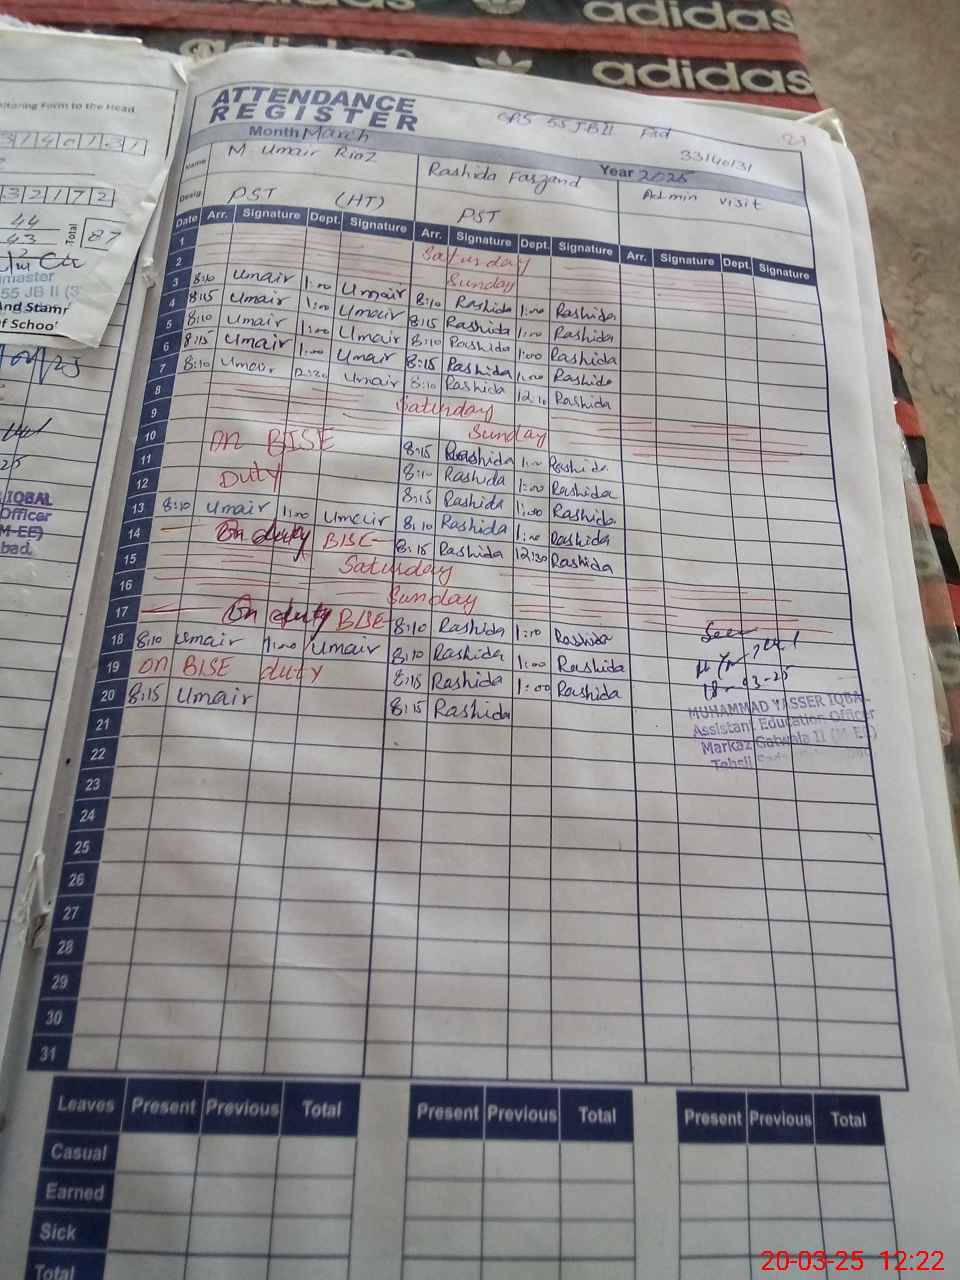 adidas
adidas
adidas
ATTENDANCE
REGISTER
GPS 55 JB II Fsd
Month March
33140131
Year 2025
Name M Umair Riaz Rashida Farzand Admin visit
Desig. PST (HT) PST
Date Arr. Signature Dept. Signature Arr. Signature Dept. Signature Arr. Signature Dept. Signature
1 Saturday
2 Sunday
3 8:10 Umair 1:00 Umair 8:10 Rashida 1:00 Rashida
4 8:15 Umair 1:00 Umair 8:15 Rashida 1:00 Rashida
5 8:10 Umair 1:00 Umair 8:10 Rashida 1:00 Rashida
6 8:15 Umair 1:00 Umair 8:15 Rashida 1:00 Rashida
7 8:10 Umair 12:30 Umair 8:10 Rashida 12:30 Rashida
8 Saturday
9 Sunday
10 on BISE 8:15 Rashida 1:00 Rashida
11 Duty 8:10 Rashida 1:00 Rashida
12 8:15 Rashida 1:00 Rashida
13 8:10 Umair 1:00 Umair 8:10 Rashida 1:00 Rashida
14 On duty BISE 8:15 Rashida 12:30 Rashida
15 Saturday
16 Sunday
17 On duty BISE 8:10 Rashida 1:00 Rashida
18 8:10 Umair 1:00 Umair 8:10 Rashida 1:00 Rashida
19 on BISE duty 8:15 Rashida 1:00 Rashida
20 8:15 Umair 8:15 Rashida
21
22
23
24
25
26
27
28
29
30
31
Seen
18-03-25
MUHAMMAD YASSER IQBAL
Assistant Education Officer
Markaz Gatwala II (M-EE)
Tehsil
Leaves Present Previous Total Present Previous Total Present Previous Total
Casual
Earned
Sick
Total
itoring Form to the Head
32172
44
43
Total 87
master
55 JB II
And Stamp
of School
IQBAL
Officer
(M-EE)
20-03-25 12:22